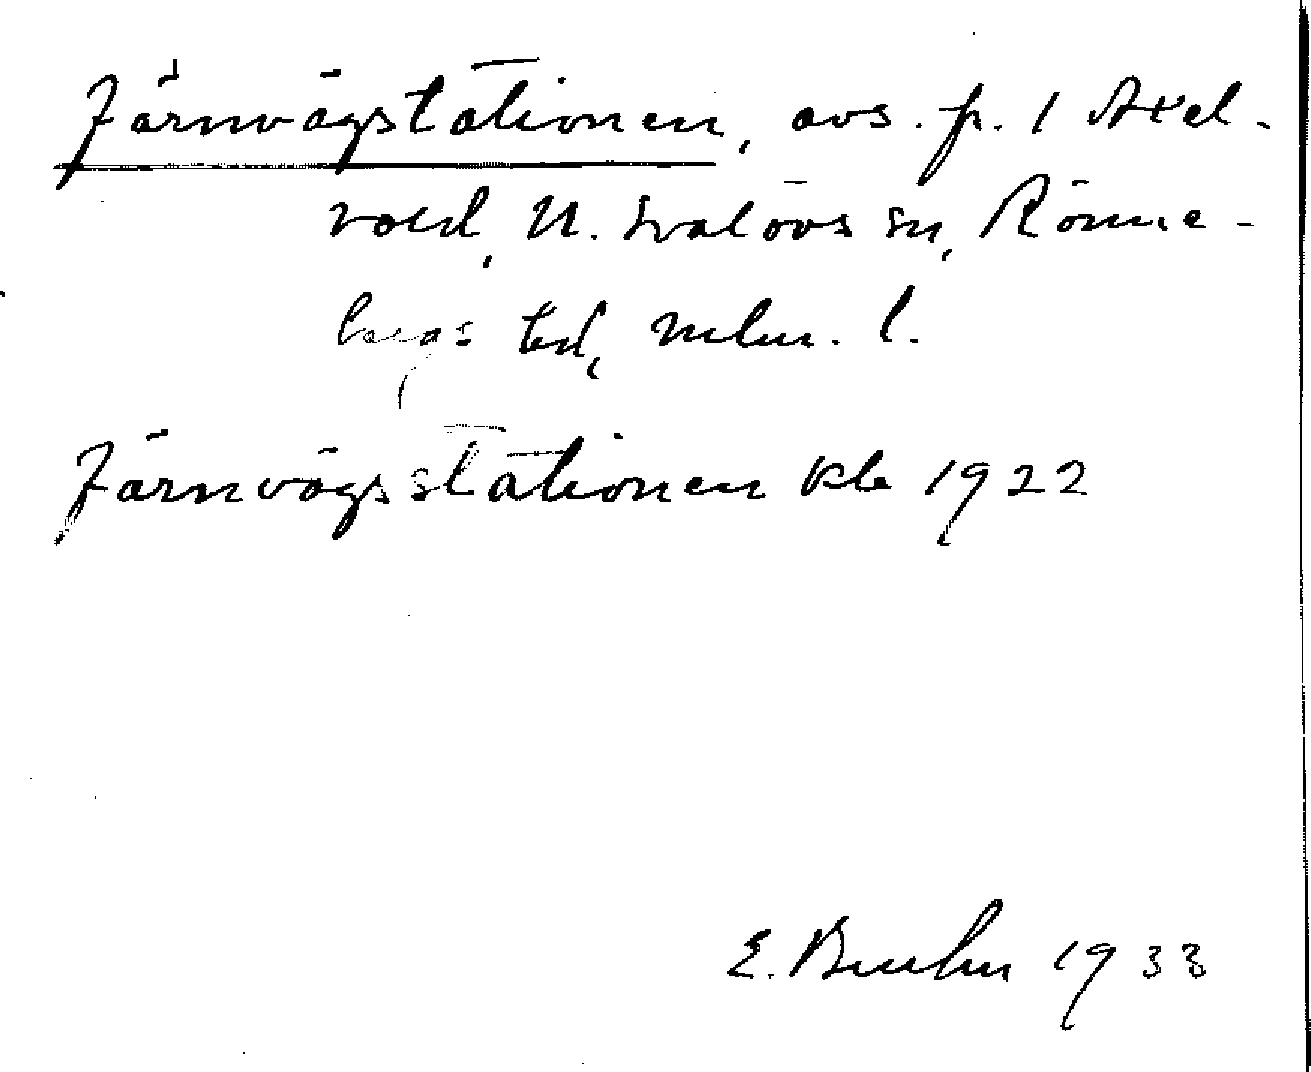 Järnvägstationen, avs. fr. 1 Axel-
vold, N. Svalövs sn, Rönne-
bergs hd, Mlm. l.
Järnvägsstationen Kb 1922
E. 1933